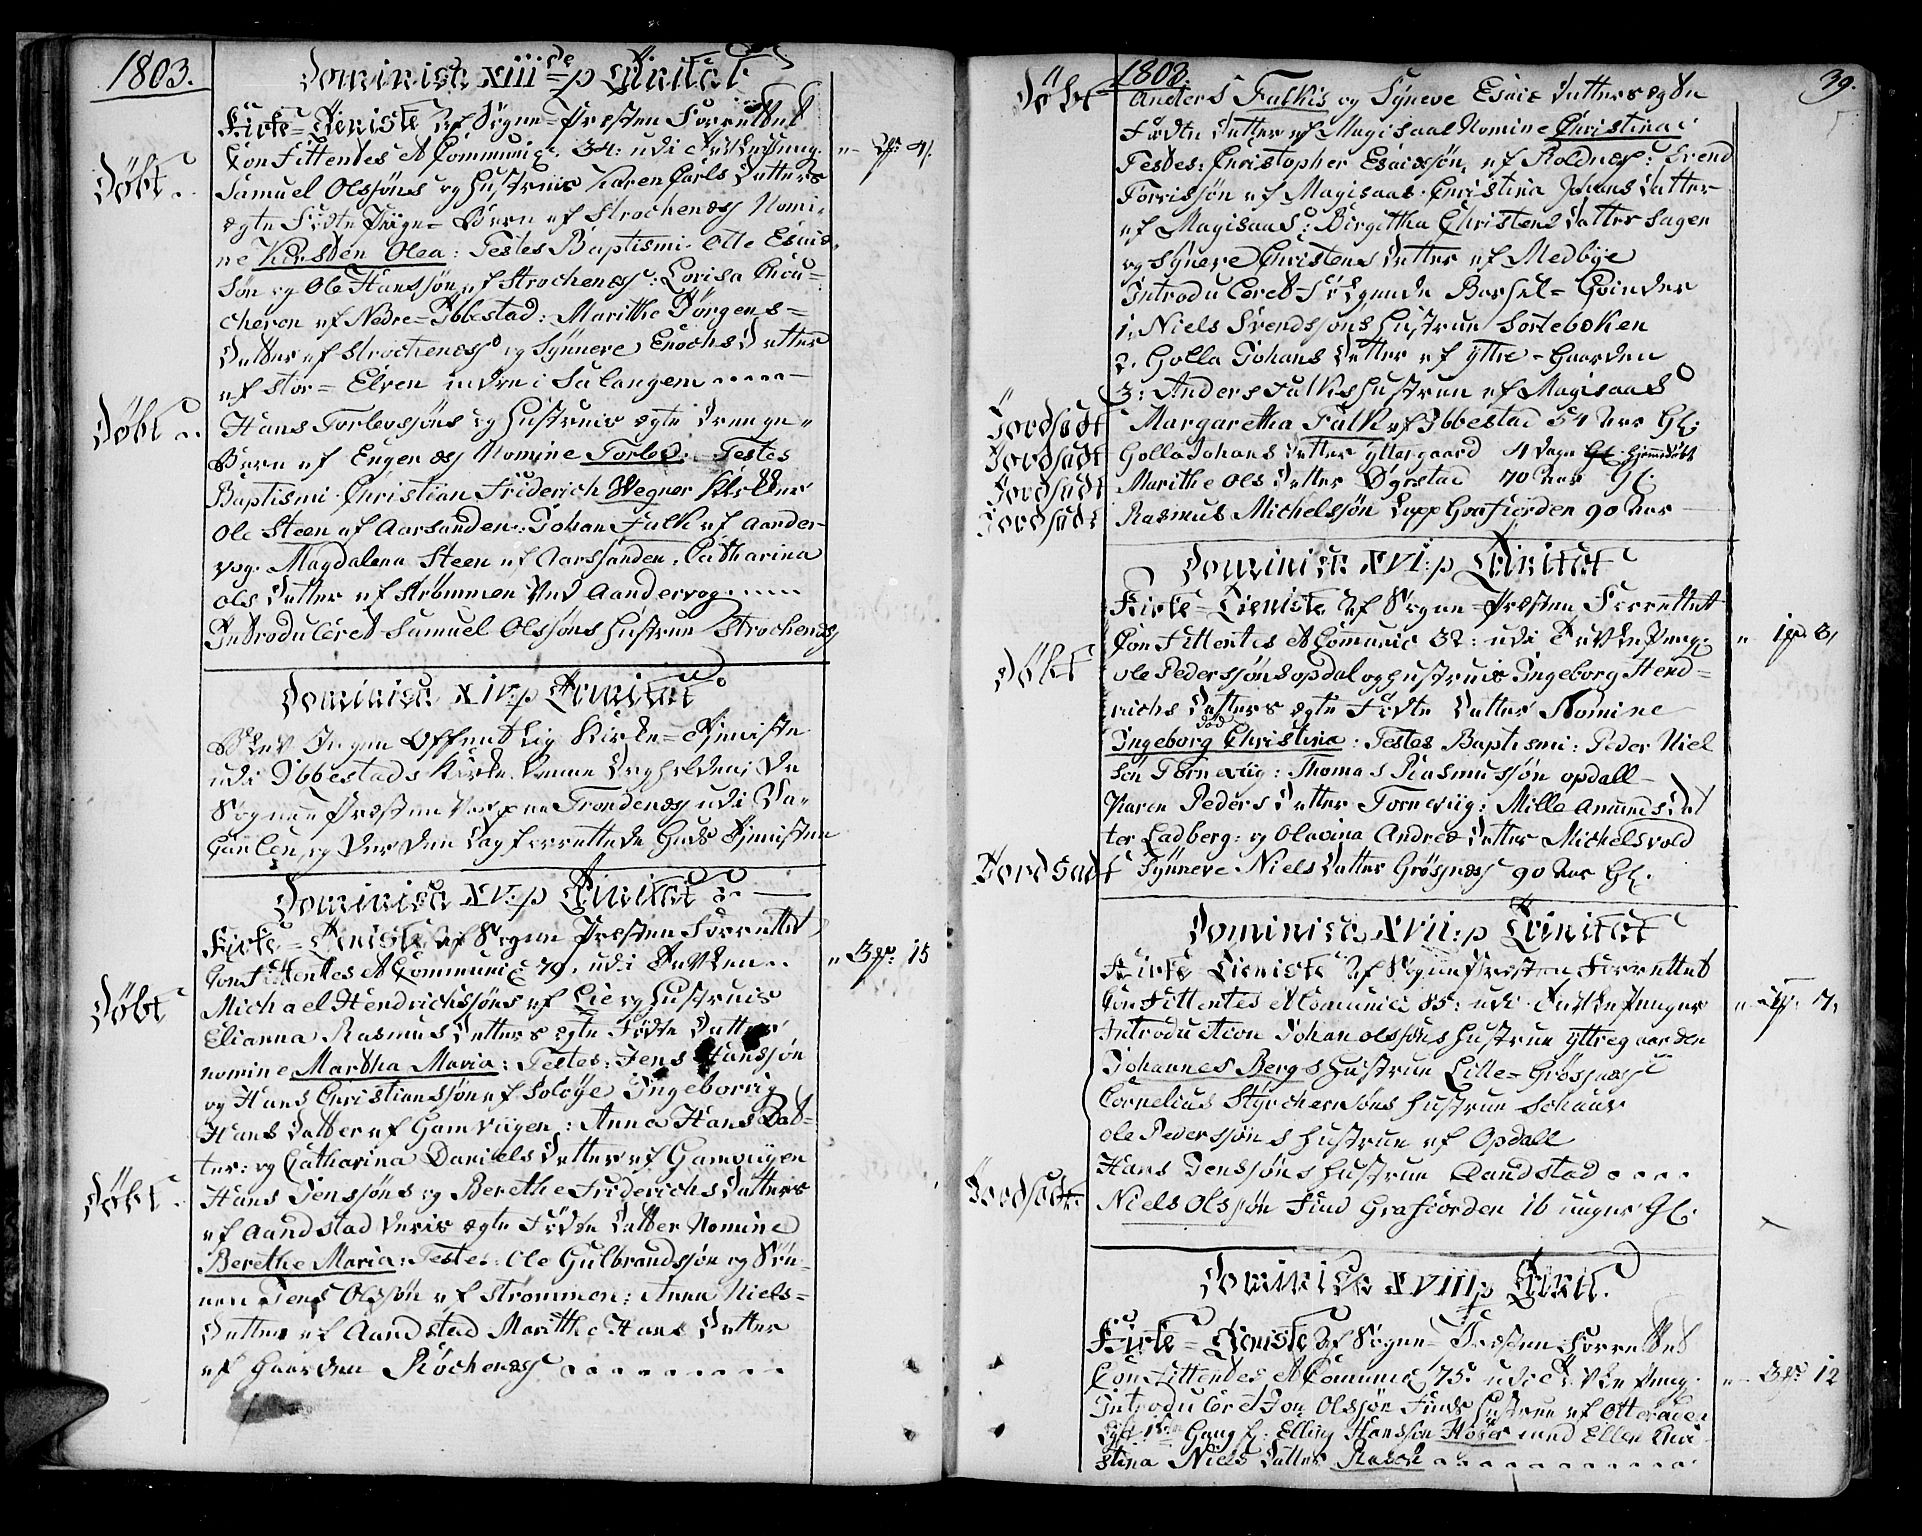 1803.
Dominica XIII de p Trinitat
Kirke-Tieniste af Sogne-Præsten Forrettet
Confittentes et Communic. 34: udi Tavlepeng
Døbt
Samuel Olssøns og Hustruis Karen Carls Datters
ægte Fødte Børn af Strochenæs Nomi-
ne Kirsten Olea: Testes Baptismi. Olle Esaie
søn og Ole Hanssøn af Strochenæs: Lovisa
af Nedre-Ibbestad: Marithe Jørgens-
Datter af Strochenæs og Synnere Enochs Datter
af stor-Elven indre i Salangen
Døbt
Hans Torlevssøns og Hustruis ægte Drenge-
Barn af Engenæs Nomine Torlev. Testes
Baptismi. Christian Friderich Wegner
Ole Steen af Aarsanden: Johan Falk af Aander-
vog. Magdalena Steen af Aarssanden. Catharina
Ols Datter af Strømmen Ved Aandervog
Introduceret Samuel Olssøns Hustrue Strochenæs
Dominica XIV: p Trinitat
Blev Ingen Offentlig Kirke-Tjeniste
udi Ibbestads Kirke denne Dag helden; Da
Sogne Præsten Var paa Trondenæs udi Va-
og Der den Dag forrettede Guds Tjenisten
Dominica XV: p Trinitat
Kirke-Tieniste af Sogne Præsten Forrettet
Confittentes et Communic 79. udi Tavlen
3 15
Døbt
Michael Hendrichssøns af Lie og Hustruis
Elianna Rasmus Datters ægte Fødte Datter
nomine Martha Maria: Testes: Jens Hanssøn
og Hans Christianssøn af Soløye Ingeborrig
Hans Datter af Gamviigen: Anna Hans Dat-
ter: og Catharina Daniels Datter af Gamviigen
Døbt
Hans Jenssøns og Berethe Friderichs Datters
af Aandstad Deris ægte Fødte Datter Nomine
Berethe Maria: Testes: Ole Gulbrandssøn og Søn-
nen Jens Olssøn af Strømmen: Anne Niels-
Datter af Aandstad Marithe Hans Datter
af Gaarden Røchenæs
1803.
39.
Døbt
Anders Falkis og Syneve Esaie Datters ægte
Fødte Datter af Magisaas Nomine Christina
Testes: Christopher Esaiæsøn, af Roldnæs: Svend
Torrissøn af Magisaas. Christina Johans Datter
af Magisaas: Birgitha Christens Datter Sagen
og Synere Christens Datter af Medbye
Introduceret Følgende Barsel-Qvinder
1. Niels Svendssøns Hustrue Sorteboken
2. Golla Johans Datter af Ytre-Gaarden
3: Anders Falks Hustrue af Magisaas
Jordfæst Margaretha Falk af Ibbestad 54 Aar Gl:
Jordfæst Golla Johans Datter Yttergaard 4 Dage Gl. hjemedøbt
Jordfæst Marithe Ols Datter Dyrstad 70 Aar Gl.
Jordfæst Rasmus Michelssøn Lapp Grafjorden 90 Aar
Dominica XVI: p Trinitat
Kirke-Tieniste af Sogne-Præsten Forrettet
Confittentes et Comunic 32: udi Tavle Peng:
Døbt
Ole Pederssøns Opdal og Hustruis Ingeborg Hend-
richs Datters ægte Fødte Datter Nomine
død
Ingeborg Christina: Testes Baptismi: Peder Niel
sen Tørneviig: Thomas Rasmussøn Opdall-
Karen Peders Datter Torneviig: Mille Amunds Dat
ter Ladberg: og Olavina Andreæ Datter Michelsvold
Jordfæst Synneve Niels Datter Grøsnæs 90 Aar Gl.
Dominica XVII: p Trinitat
Kirke Tieniste af Sogne Præsten Forrettet
Confittentes et Comunici 85: udi Tavle Penger
Introduction Johan Olssøns Hustrue Yttregaarden
Johannes Bergs Hustrue Lille-Grøssnæs
Cornelius Styrchersøns Hustrue
Ole Pederssøns Hustrue af Opdall
Hans Jenssøns Hustrue Aandstad
Jordfæst Niels Olssøn Find Grafjorden 16 uuger Gl.
Dominica XVIII p Trinit.
Kirke-Tieniste af Sogne-Præsten Forrettet
Confittentes et Comunic 75: udi Tavle Peng.
12
Introduceret Jon Olssøn Finds Hustrue af
1ste Gang f: Elling Hanssøn med Ellen Chri-
stina Niels Datter